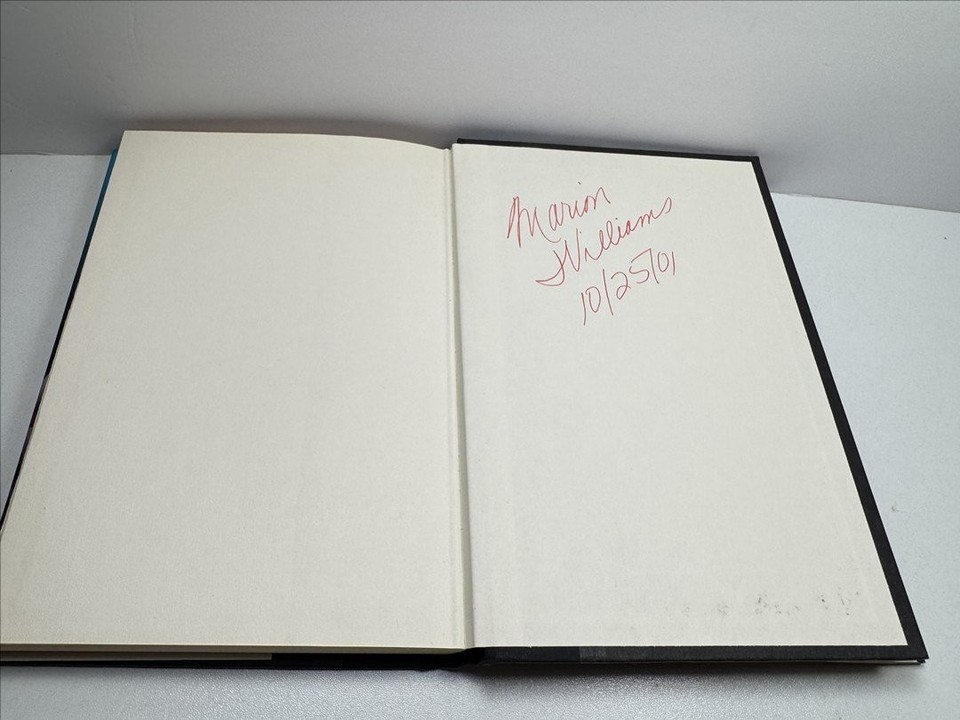 Marion
Williams
10/25/01